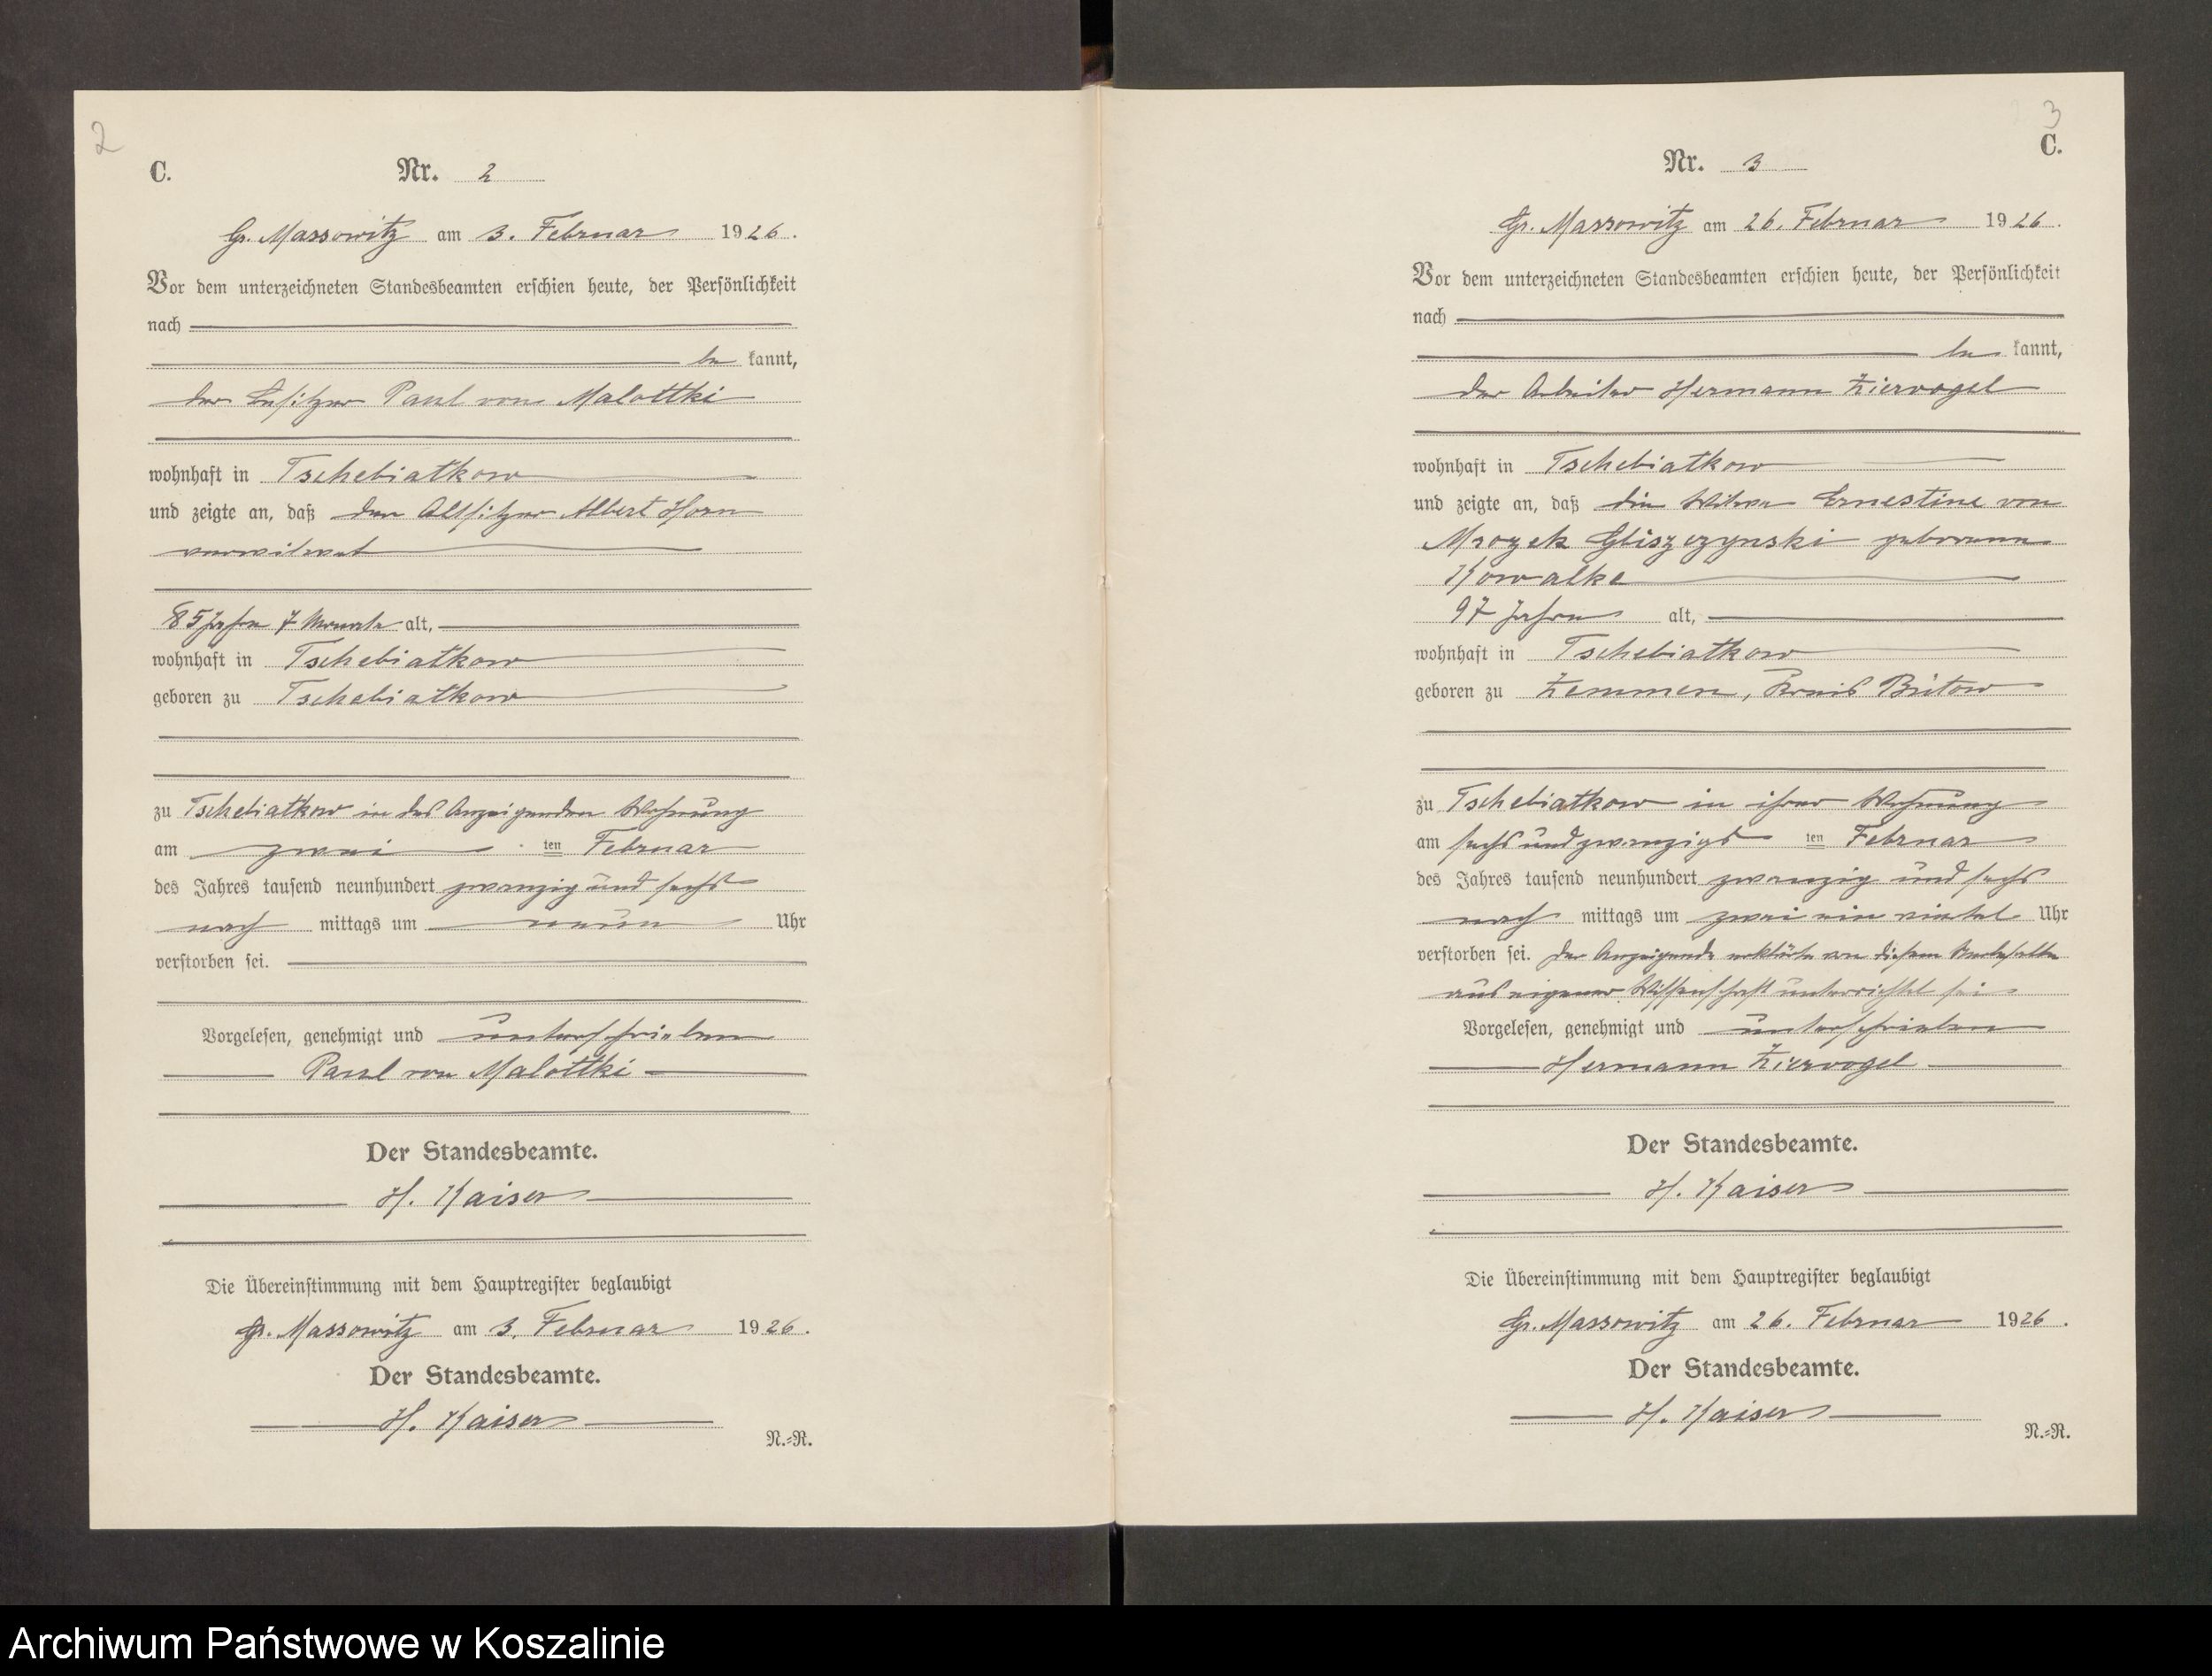 2
C.
Nr. 2
Gr. Massowitz am 3. Februar 1926.
Vor dem unterzeichneten Standesbeamten erschien heute, der Persönlichkeit
nach
be kannt,
der Besitzer Paul von Malottki
wohnhaft in Tschebiatkow
und zeigte an, daß der Altsitzer Albert Horn
verwitwet
85 Jahre 7 Monate alt,
wohnhaft in Tschebiatkow
geboren zu Tschebiatkow
zu Tschebiatkow in des Anzeigenden Wohnung
am zwei ten Februar
des Jahres tausend neunhundert zwanzig und sechs
nach mittags um neun Uhr
verstorben sei.
Vorgelesen, genehmigt und unterschrieben
Paul von Malottki
Der Standesbeamte.
H. Kaiser
Die Übereinstimmung mit dem Hauptregister beglaubigt
Gr. Massowitz am 3. Februar 1926.
Der Standesbeamte.
H. Kaiser
N.=R.
3
C.
Nr. 3
Gr. Massowitz am 26. Februar 1926.
Vor dem unterzeichneten Standesbeamten erschien heute, der Persönlichkeit
nach
be kannt,
der Arbeiter Hermann Ziervogel
wohnhaft in Tschebiatkow
und zeigte an, daß die Witwe Ernestine von
Mrozek Gliszczynski geborene
Kowalke
97 Jahre alt,
wohnhaft in Tschebiatkow
geboren zu Zemmen, Kreis Bütow
zu Tschebiatkow in ihrer Wohnung
am sechsundzwanzigs ten Februar
des Jahres tausend neunhundert zwanzig und sechs
nach mittags um zwei ein viertel Uhr
verstorben sei. Der Anzeigende erklärte von diesem Sterbefalle
aus eigener Wissenschaft unterrichtet sei
Vorgelesen, genehmigt und unterschrieben
Hermann Ziervogel
Der Standesbeamte.
H. Kaiser
Die Übereinstimmung mit dem Hauptregister beglaubigt
Gr. Massowitz am 26. Februar 1926.
Der Standesbeamte.
H. Kaiser
N.=R.
Archiwum Państwowe w Koszalinie